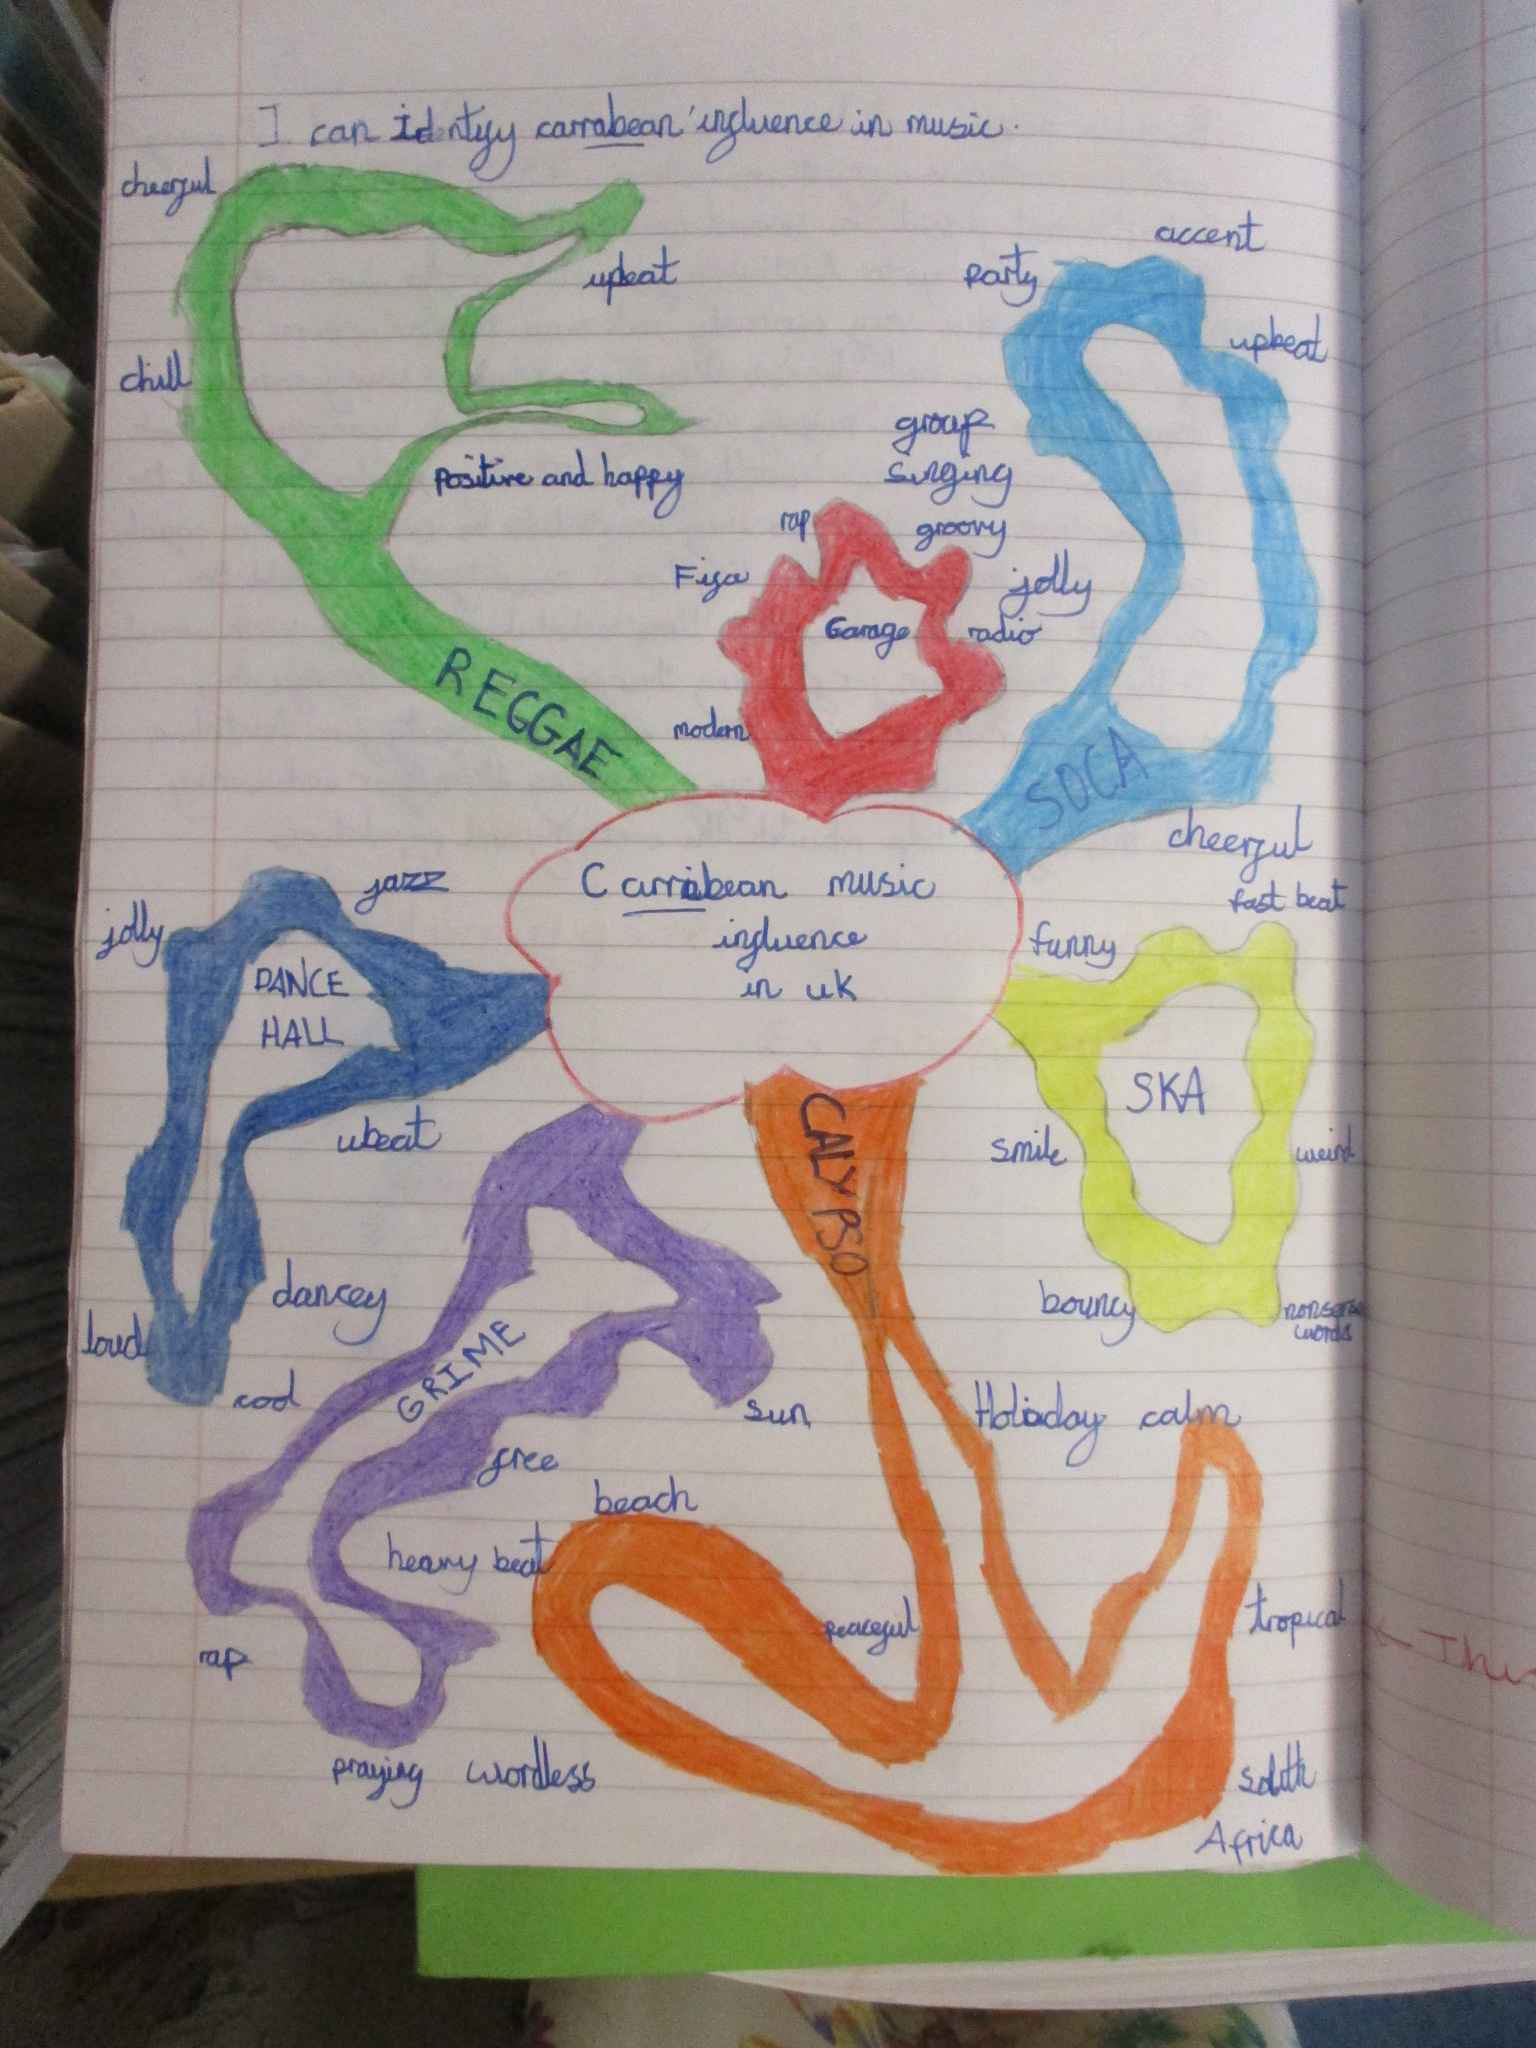 I can identify carrabean influence in music.
cheerful
upbeat
chill
positive and happy
REGGAE
accent
party
upbeat
group
singing
groovy
jolly
SOCA
cheerful
rap
Garage
radio
modern
Carribean music
influence
in uk
jazz
jolly
DANCE
HALL
ubeat
dancey
loud
cool
fast beat
funny
SKA
smile
weird
bouncy
nonsense
words
CALYPSO
GRIME
sun
free
heavy beat
rap
praying wordless
Holiday calm
beach
peaceful
tropical
south
Africa